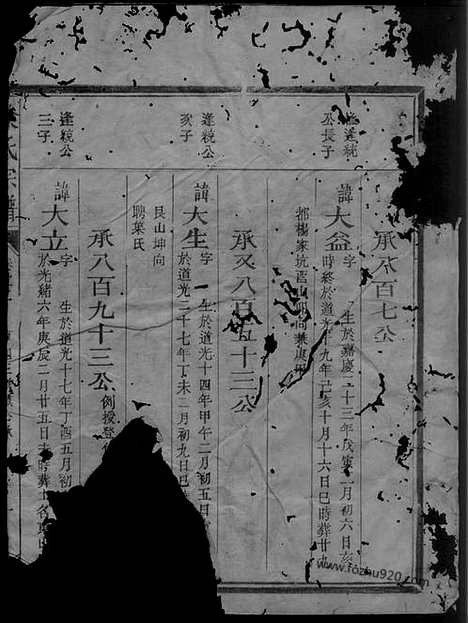 承八百七公
逢統
公長子
諱大益字
生於嘉慶二十三年戊寅二月初六日
時終於道光十九年己亥十月十六日巳時葬廿九
都楊家坑酉山卯向
承又八百五十三公
逢統公
次子
諱大生字
生於道光十四年甲午二月初五日
於道光二十七年丁未二月初九日巳
艮山坤向
聘葉氏
承八百九十三公
例授登仕
逢統公
三子
諱大立字
生於道光十七年丁酉五月初
於光緒六年庚辰二月廿五日未時葬
氏宗譜
www.fozhu920.com